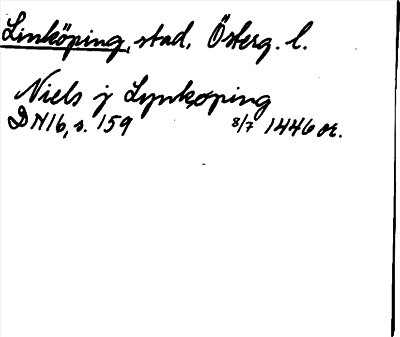 Linköping, stad, Österg. l.
Niels j Lynkoping
DN16, s. 159 8/7 1446 or.